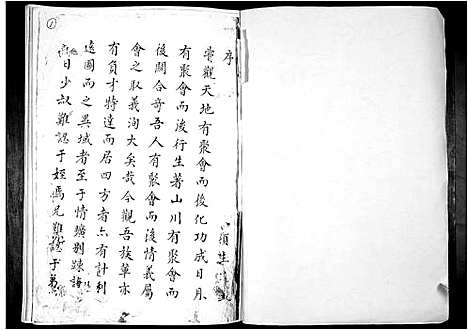 序
嘗觀天地有聚會而後化功成日月
有聚會而浚行生著山川有聚會而
後開合奇吾人有聚會而浚情義屬
會之取義洵大矣哉今觀吾族單亦
有負才特達而居四方者亦有計利
遠圖而之異域者至于情壙別踈諸
日少叔難認于姪馬兄難于弟